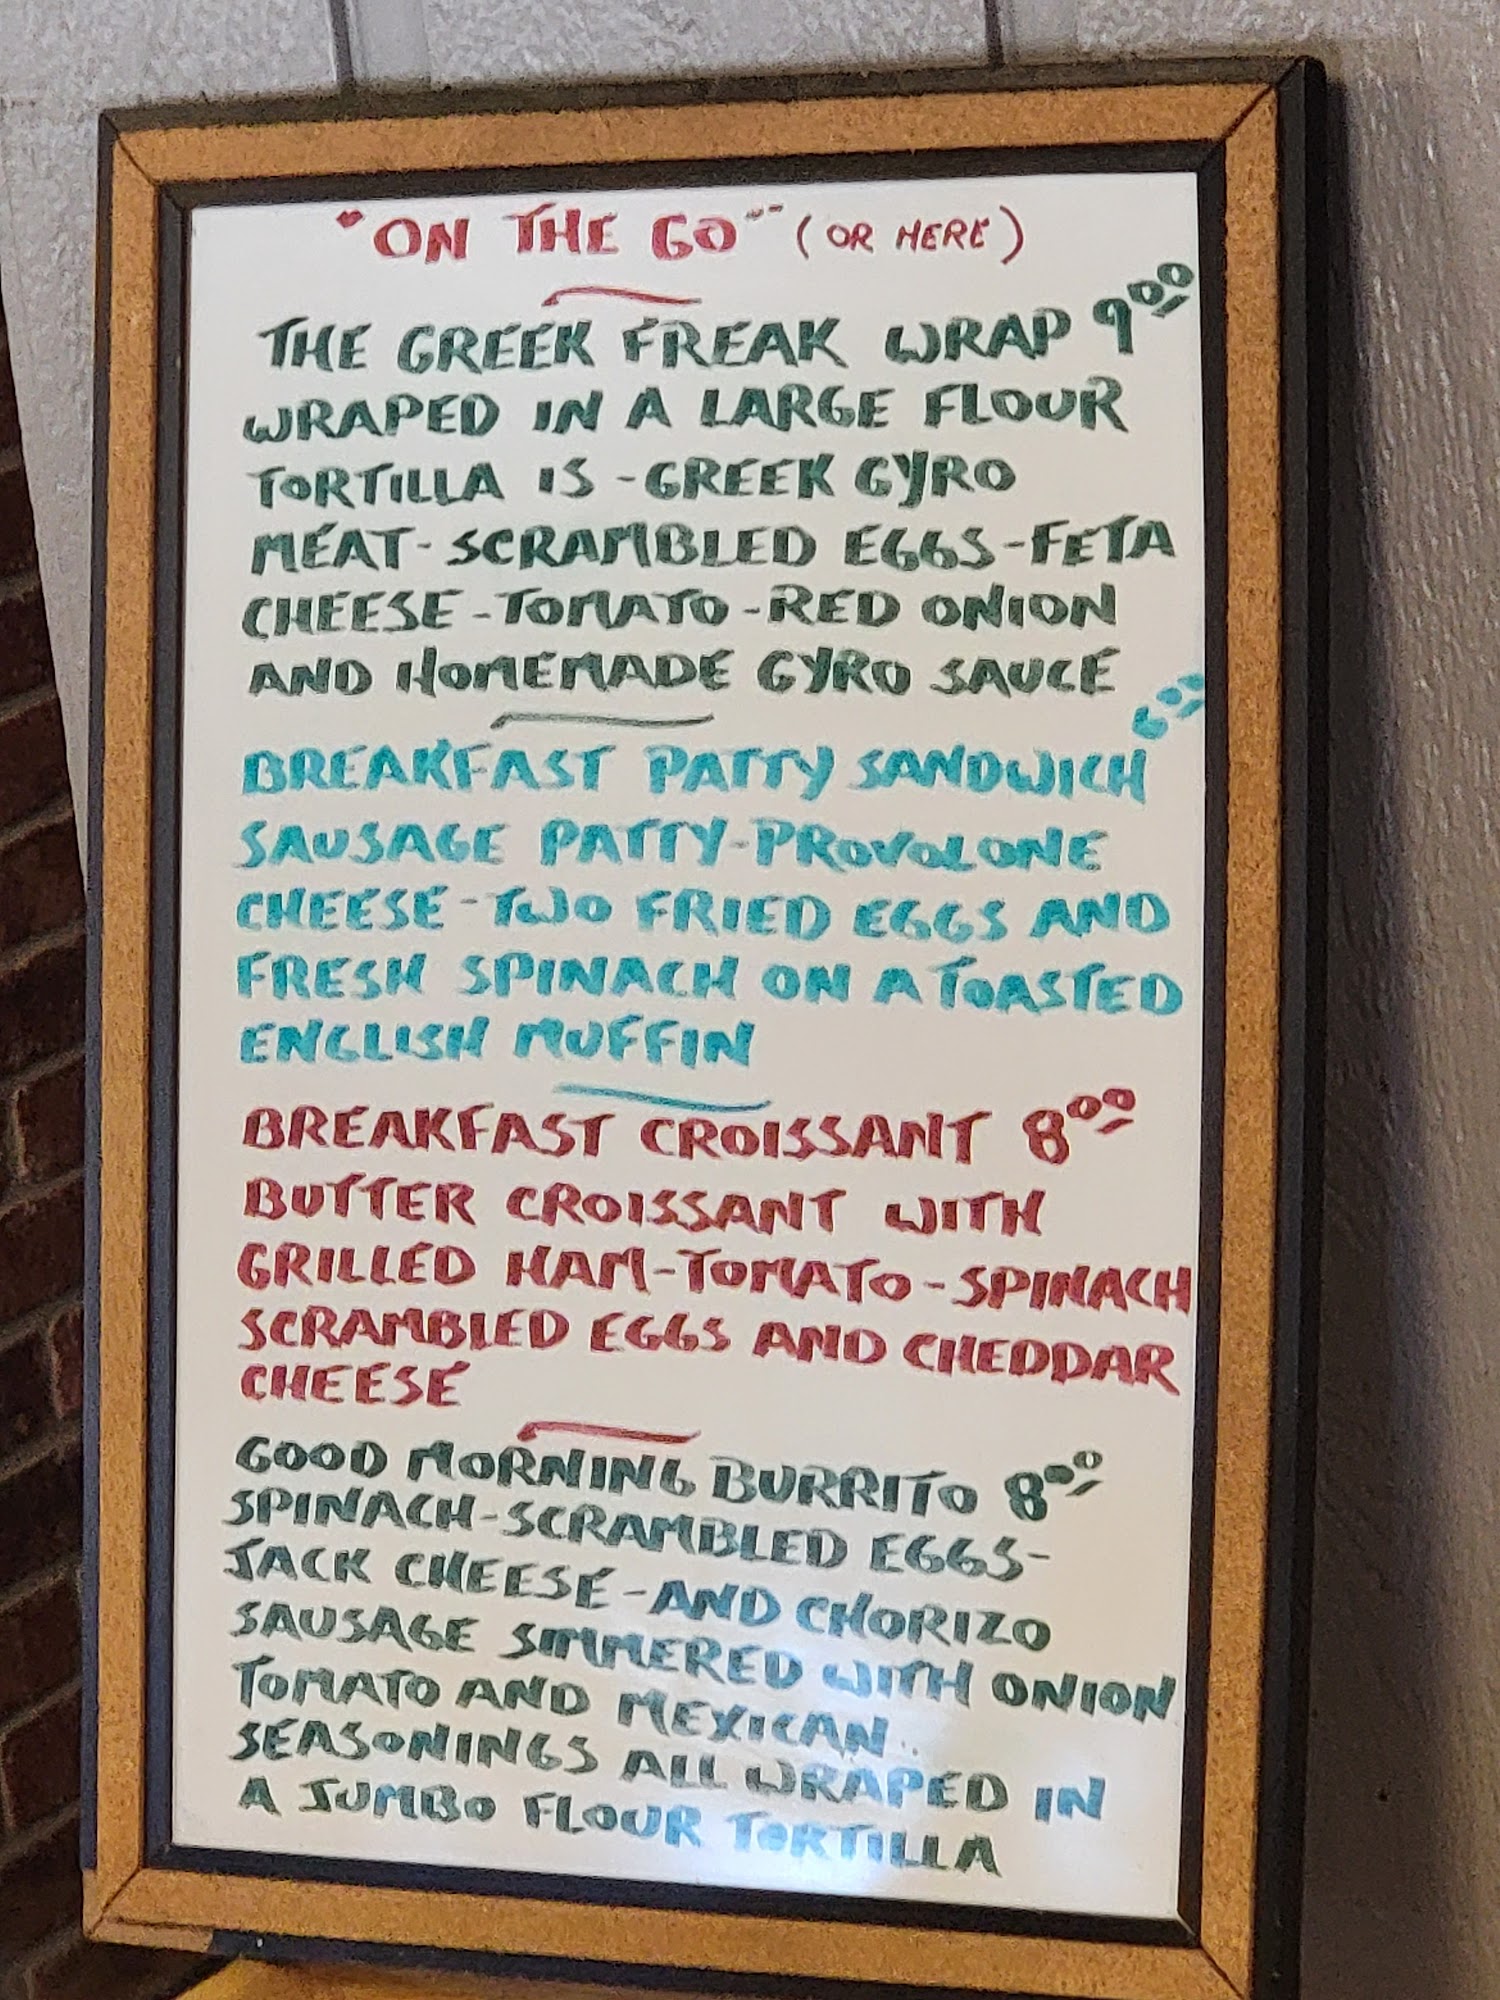 "ON THE GO" (OR HERE)
THE GREEK FREAK WRAP 9⁰⁰
WRAPED IN A LARGE FLOUR
TORTILLA IS - GREEK GYRO
MEAT - SCRAMBLED EGGS - FETA
CHEESE - TOMATO - RED ONION
AND HOMEMADE GYRO SAUCE
6⁰⁰
BREAKFAST PATTY SANDWICH
SAUSAGE PATTY - PROVOLONE
CHEESE - TWO FRIED EGGS AND
FRESH SPINACH ON A TOASTED
ENGLISH MUFFIN
BREAKFAST CROISSANT 8⁰⁰
BUTTER CROISSANT WITH
GRILLED HAM - TOMATO - SPINACH
SCRAMBLED EGGS AND CHEDDAR
CHEESE
GOOD MORNING BURRITO 8⁰⁰
SPINACH - SCRAMBLED EGGS -
JACK CHEESE - AND CHORIZO
SAUSAGE SIMMERED WITH ONION
TOMATO AND MEXICAN..
SEASONINGS ALL WRAPED IN
A JUMBO FLOUR TORTILLA